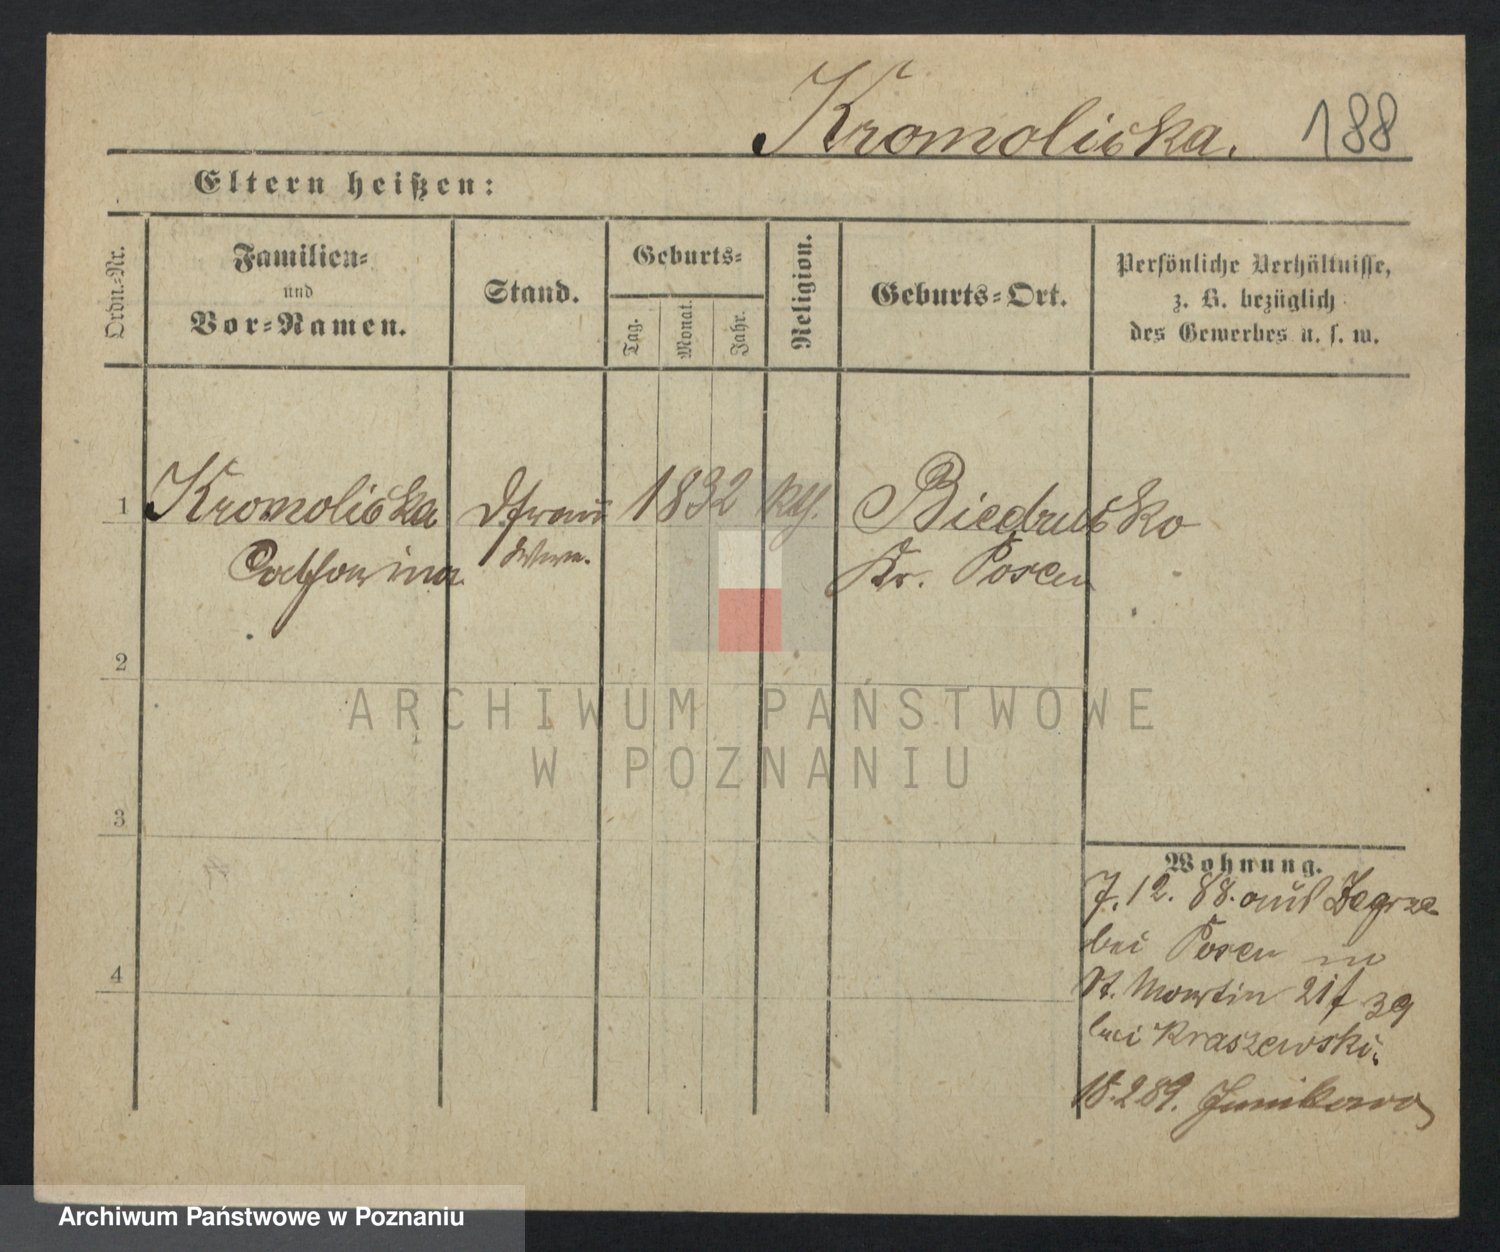 Kromoliska. 188
Eltern heißen:
Ordn.-Nr.
Familien-
und
Vor-Namen.
Stand.
Geburts-
Tag.
Monat.
Jahr.
Religion.
Geburts-Ort.
Persönliche Verhältnisse,
z. B. bezüglich
des Gewerbes u. s. w.
1 Kromoliska 1832 Biedrusko
Catharina Kr. Posen
2
3
4
Wohnung.
7.12.88. aus Zegrze
bei Posen in
St. Martin 39
bei Kraszewski.
18.2.89. Junikowo
ARCHIWUM PAŃSTWOWE
W POZNANIU
Archiwum Państwowe w Poznaniu